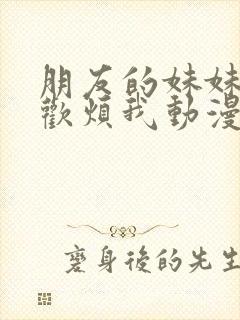 朋友的妹妹
歡煩我動漫
褒身後的先生